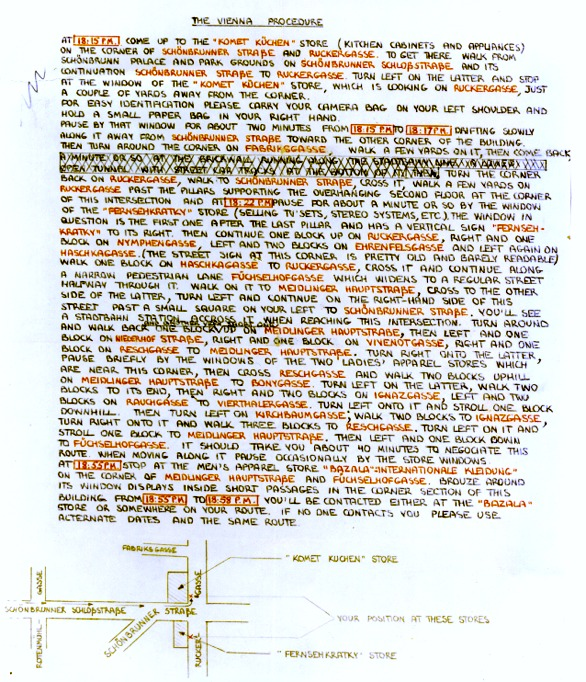 THE VIENNA PROCEDURE
AT 18:15 P.M. COME UP TO THE "KOMET KÜCHEN" STORE (KITCHEN CABINETS AND APPLIANCES)
ON THE CORNER OF SCHÖNBRUNNER STRAßE AND RUCKERGASSE. TO GET THERE WALK FROM
SCHÖNBRUNN PALACE AND PARK GROUNDS ON SCHÖNBRUNNER SCHLOßSTRAßE AND ITS
CONTINUATION SCHÖNBRUNNER STRAßE TO RUCKERGASSE. TURN LEFT ON THE LATTER AND STOP
AT THE WINDOW OF THE "KOMET KÜCHEN" STORE, WHICH IS LOOKING ON RUCKERGASSE, JUST
A COUPLE OF YARDS AWAY FROM THE CORNER.
FOR EASY IDENTIFICATION PLEASE CARRY YOUR CAMERA BAG ON YOUR LEFT SHOULDER AND
HOLD A SMALL PAPER BAG IN YOUR RIGHT HAND.
PAUSE BY THAT WINDOW FOR ABOUT TWO MINUTES FROM 18:15 P.M. TO 18:17 P.M. DRIFTING SLOWLY
ALONG IT AWAY FROM SCHÖNBRUNNER STRAßE TOWARD THE OTHER CORNER OF THE BUILDING.
THEN TURN AROUND THE CORNER ON FABRIKSGASSE. WALK A FEW YARDS ON IT, THEN COME BACK
A MINUTE OR SO AT THE BRICKWALL RUNNING ALONG THE STADTBAHN LINE
OPEN TUNNEL WITH STREET CAR TRACKS AT THE BOTTOM OF IT. THEN TURN THE CORNER
BACK ON RUCKERGASSE, WALK TO SCHÖNBRUNNER STRAßE, CROSS IT, WALK A FEW YARDS ON
RUCKERGASSE PAST THE PILLARS SUPPORTING THE OVERHANGING SECOND FLOOR AT THE CORNER
OF THIS INTERSECTION AND AT 18:22 P.M. PAUSE FOR ABOUT A MINUTE OR SO BY THE WINDOW
OF THE "FERNSEHKRATKY" STORE (SELLING TV SETS, STEREO SYSTEMS, ETC). THE WINDOW IN
QUESTION IS THE FIRST ONE AFTER THE LAST PILLAR AND HAS A VERTICAL SIGN "FERNSEH-
KRATKY" TO ITS RIGHT. THEN CONTINUE ONE BLOCK UP ON RUCKERGASSE, RIGHT AND ONE
BLOCK ON NYMPHENGASSE, LEFT AND TWO BLOCKS ON EHRENFELSGASSE AND LEFT AGAIN ON
HASCHKAGASSE. (THE STREET SIGN AT THIS CORNER IS PRETTY OLD AND BARELY READABLE)
WALK ONE BLOCK ON HASCHKAGASSE TO RUCKERGASSE, CROSS IT AND CONTINUE ALONG
A NARROW PEDESTRIAN LANE FÜCHSELHOFGASSE WHICH WIDENS TO A REGULAR STREET
HALFWAY THROUGH IT. WALK ON IT TO MEIDLINGER HAUPTSTRAßE, CROSS TO THE OTHER
SIDE OF THE LATTER, TURN LEFT AND CONTINUE ON THE RIGHT-HAND SIDE OF THIS
STREET PAST A SMALL SQUARE ON YOUR LEFT TO SCHÖNBRUNNER STRAßE. YOU'LL SEE
A STADTBAHN STATION ACCROSS IT WHEN REACHING THIS INTERSECTION. TURN AROUND
AND WALK BACK ONE BLOCK UP ON MEIDLINGER HAUPTSTRAßE, THEN LEFT AND ONE
BLOCK ON NIEDERHOF STRAßE, RIGHT AND ONE BLOCK ON VIVENOTGASSE, RIGHT AND ONE
BLOCK ON RESCHGASSE TO MEIDLINGER HAUPTSTRAßE. TURN RIGHT ONTO THE LATTER,
PAUSE BRIEFLY BY THE WINDOWS OF THE TWO LADIES' APPAREL STORES WHICH
ARE NEAR THIS CORNER, THEN CROSS RESCHGASSE AND WALK TWO BLOCKS UPHILL
ON MEIDLINGER HAUPTSTRAßE TO BONYGASSE. TURN LEFT ON THE LATTER, WALK TWO
BLOCKS TO ITS END, THEN RIGHT AND TWO BLOCKS ON IGNAZGASSE, LEFT AND TWO
BLOCKS ON RAUCHGASSE TO VIERTHALERGASSE. TURN LEFT ONTO IT AND STROLL ONE BLOCK
DOWNHILL. THEN TURN LEFT ON KIRCHBAUMGASSE, WALK TWO BLOCKS TO IGNAZGASSE,
TURN RIGHT ONTO IT AND WALK THREE BLOCKS TO RESCHGASSE. TURN LEFT ON IT AND
STROLL ONE BLOCK TO MEIDLINGER HAUPTSTRAßE. THEN LEFT AND ONE BLOCK DOWN
TO FÜCHSELHOFGASSE. IT SHOULD TAKE YOU ABOUT 40 MINUTES TO NEGOTIATE THIS
ROUTE WHEN MOVING ALONG IT PAUSE OCCASIONALLY BY THE STORE WINDOWS
AT 18:55 P.M. STOP AT THE MEN'S APPAREL STORE "BAZALA" INTERNATIONALE KLEIDUNG"
ON THE CORNER OF MEIDLINGER HAUPTSTRAßE AND FÜCHSELHOFGASSE. BROUZE AROUND
ITS WINDOW DISPLAYS INSIDE SHORT PASSAGES IN THE CORNER SECTION OF THIS
BUILDING FROM 18:55 P.M. TO 18:58 P.M. YOU'LL BE CONTACTED EITHER AT THE "BAZALA"
STORE OR SOMEWHERE ON YOUR ROUTE. IF NO ONE CONTACTS YOU PLEASE USE
ALTERNATE DATES AND THE SAME ROUTE.
FABRIKSGASSE
"KOMET KÜCHEN" STORE
GASSE
GASSE
SCHÖNBRUNNER SCHLOßSTRAßE
STRAßE
YOUR POSITION AT THESE STORES
SCHÖNBRUNNER
ROTENMÜHL-
RUCKER
"FERNSEHKRATKY" STORE